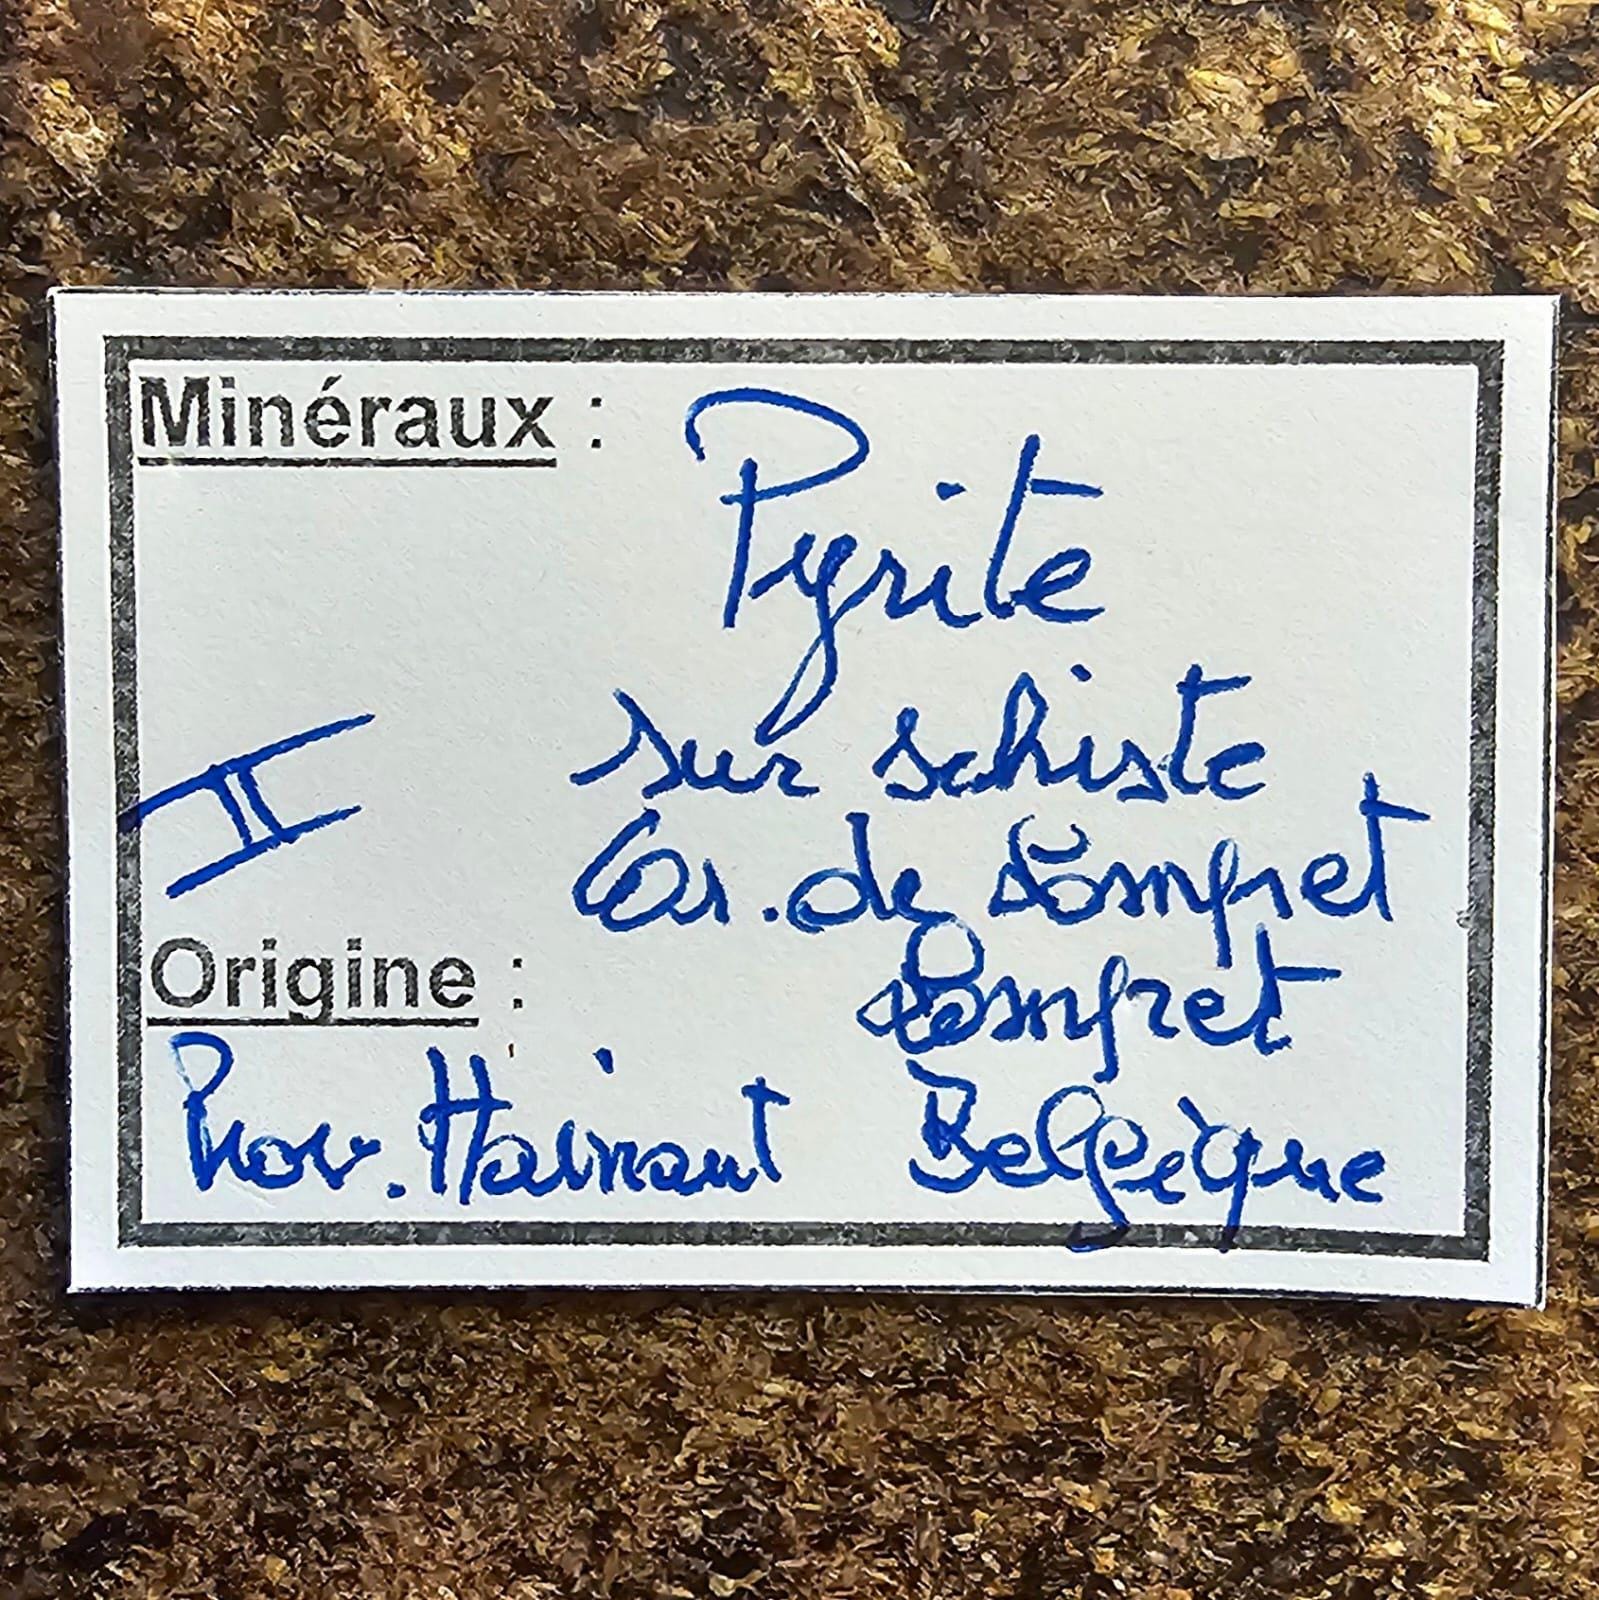 Minéraux : Pyrite
sur schiste
Car. de Lompret
II
Origine : Lompret
Prov. Hainaut Belgique